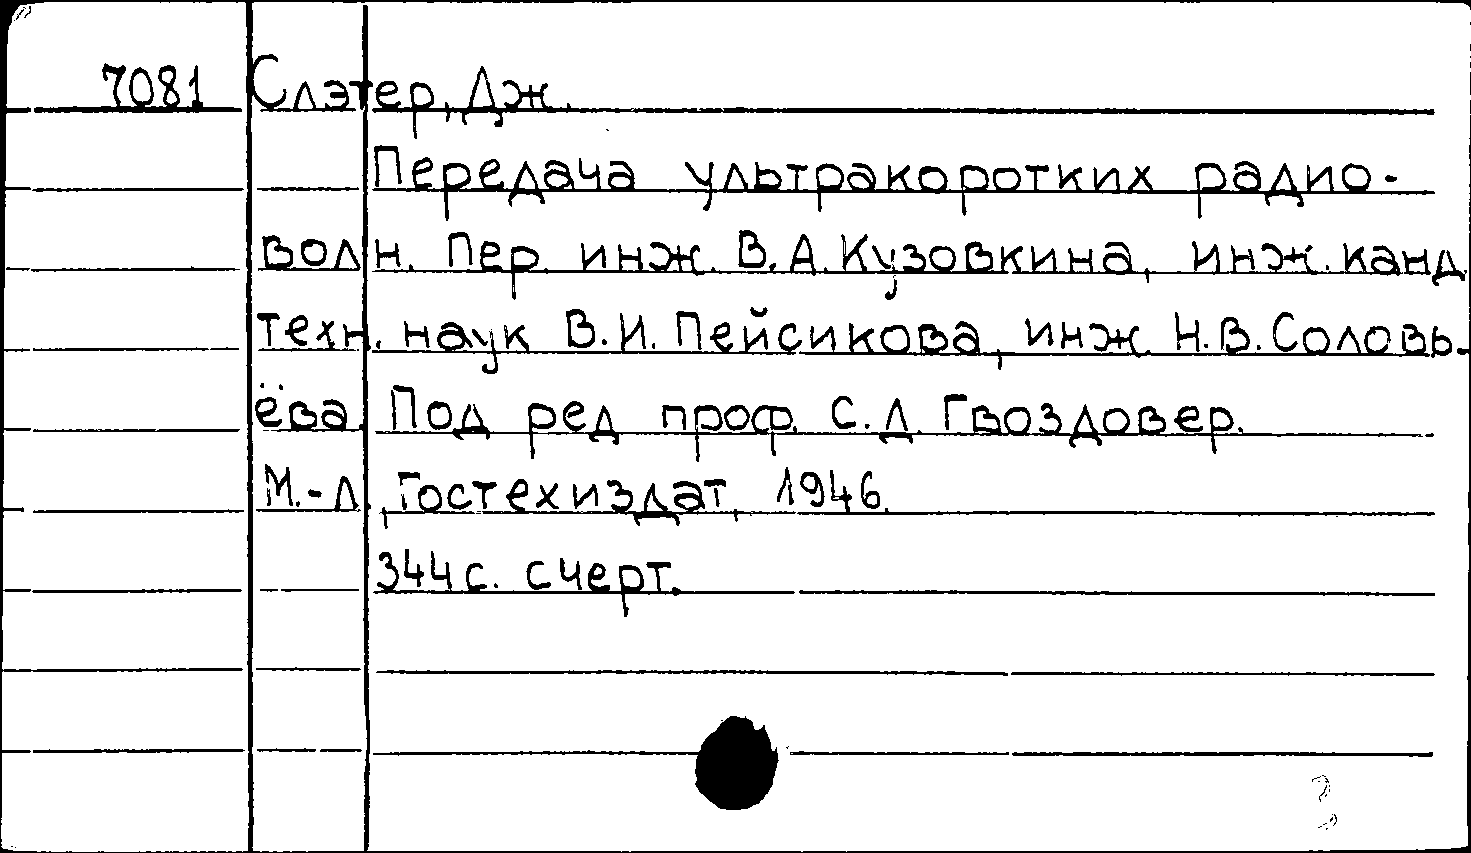 7081 Слэтер, Дж.
Передача ультракоротких радио-
волн. Пер. инж. В.А.Кузовкина, инж. канд.
техн. наук В.И.Пейсикова, инж. Н.В.Соловь-
ёва. Под ред проф. С.Д.Гвоздовер.
М.-Л., Гостехиздат, 1946.
344с. счерт.